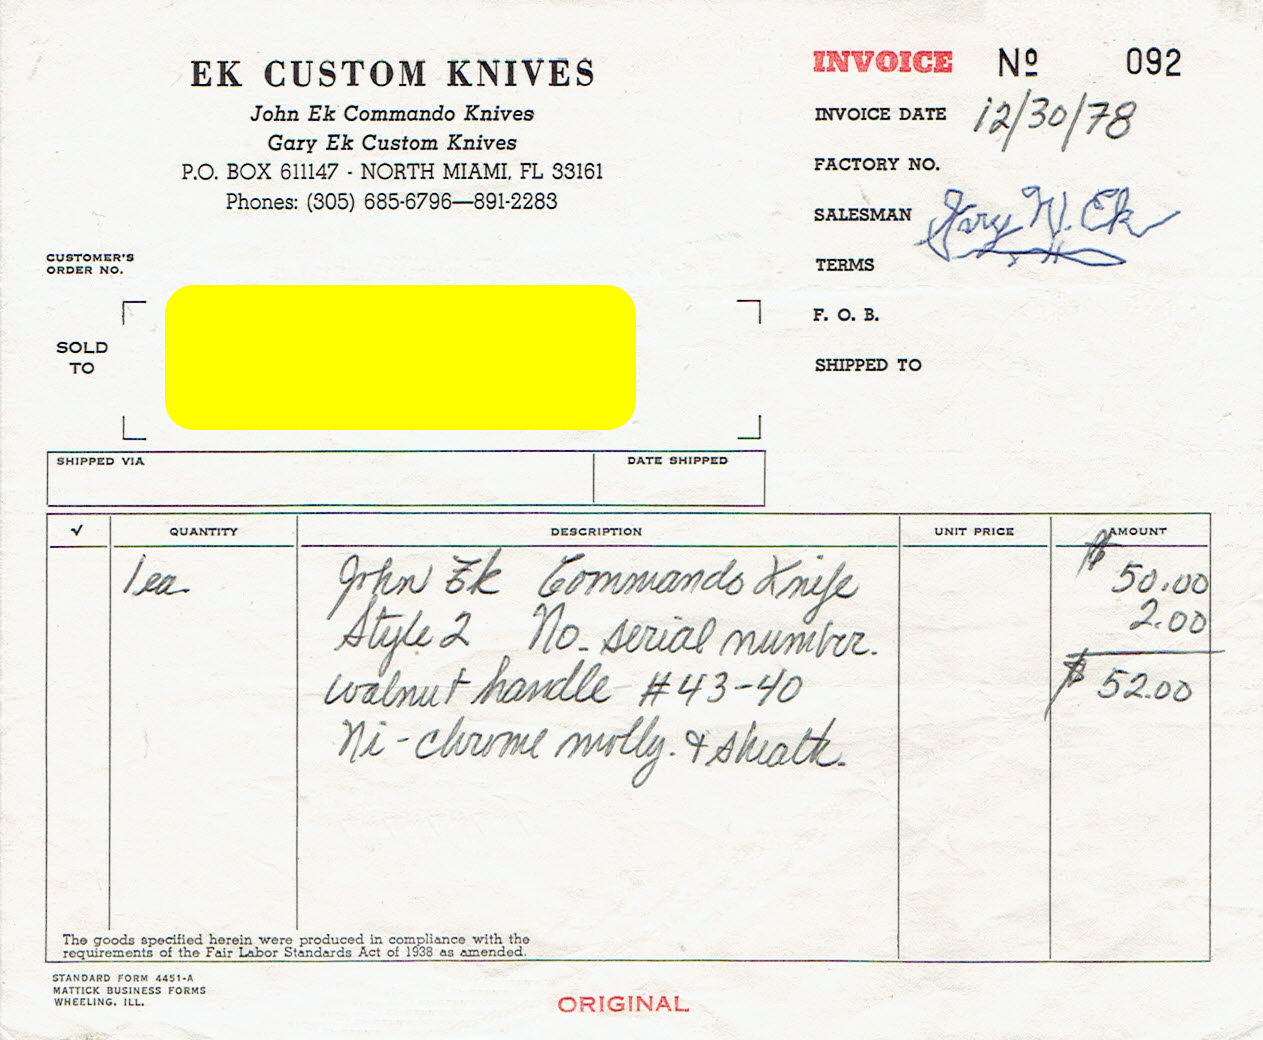 EK CUSTOM KNIVES
John Ek Commando Knives
Gary Ek Custom Knives
P.O. BOX 611147 - NORTH MIAMI, FL 33161
Phones: (305) 685-6796—891-2283
INVOICE Nº 092
INVOICE DATE 12/30/78
FACTORY NO.
SALESMAN Gary W. Ek
TERMS
F. O. B.
SHIPPED TO
CUSTOMER'S
ORDER NO.
SOLD
TO
SHIPPED VIA DATE SHIPPED
✓ QUANTITY DESCRIPTION UNIT PRICE AMOUNT
1 ea. John Ek Commando Knife $ 50.00
Style 2 No. serial number. 2.00
walnut handle #43-40 $ 52.00
Ni-chrome molly. & sheath.
The goods specified herein were produced in compliance with the
requirements of the Fair Labor Standards Act of 1938 as amended.
STANDARD FORM 4451-A
MATTICK BUSINESS FORMS
WHEELING, ILL.
ORIGINAL